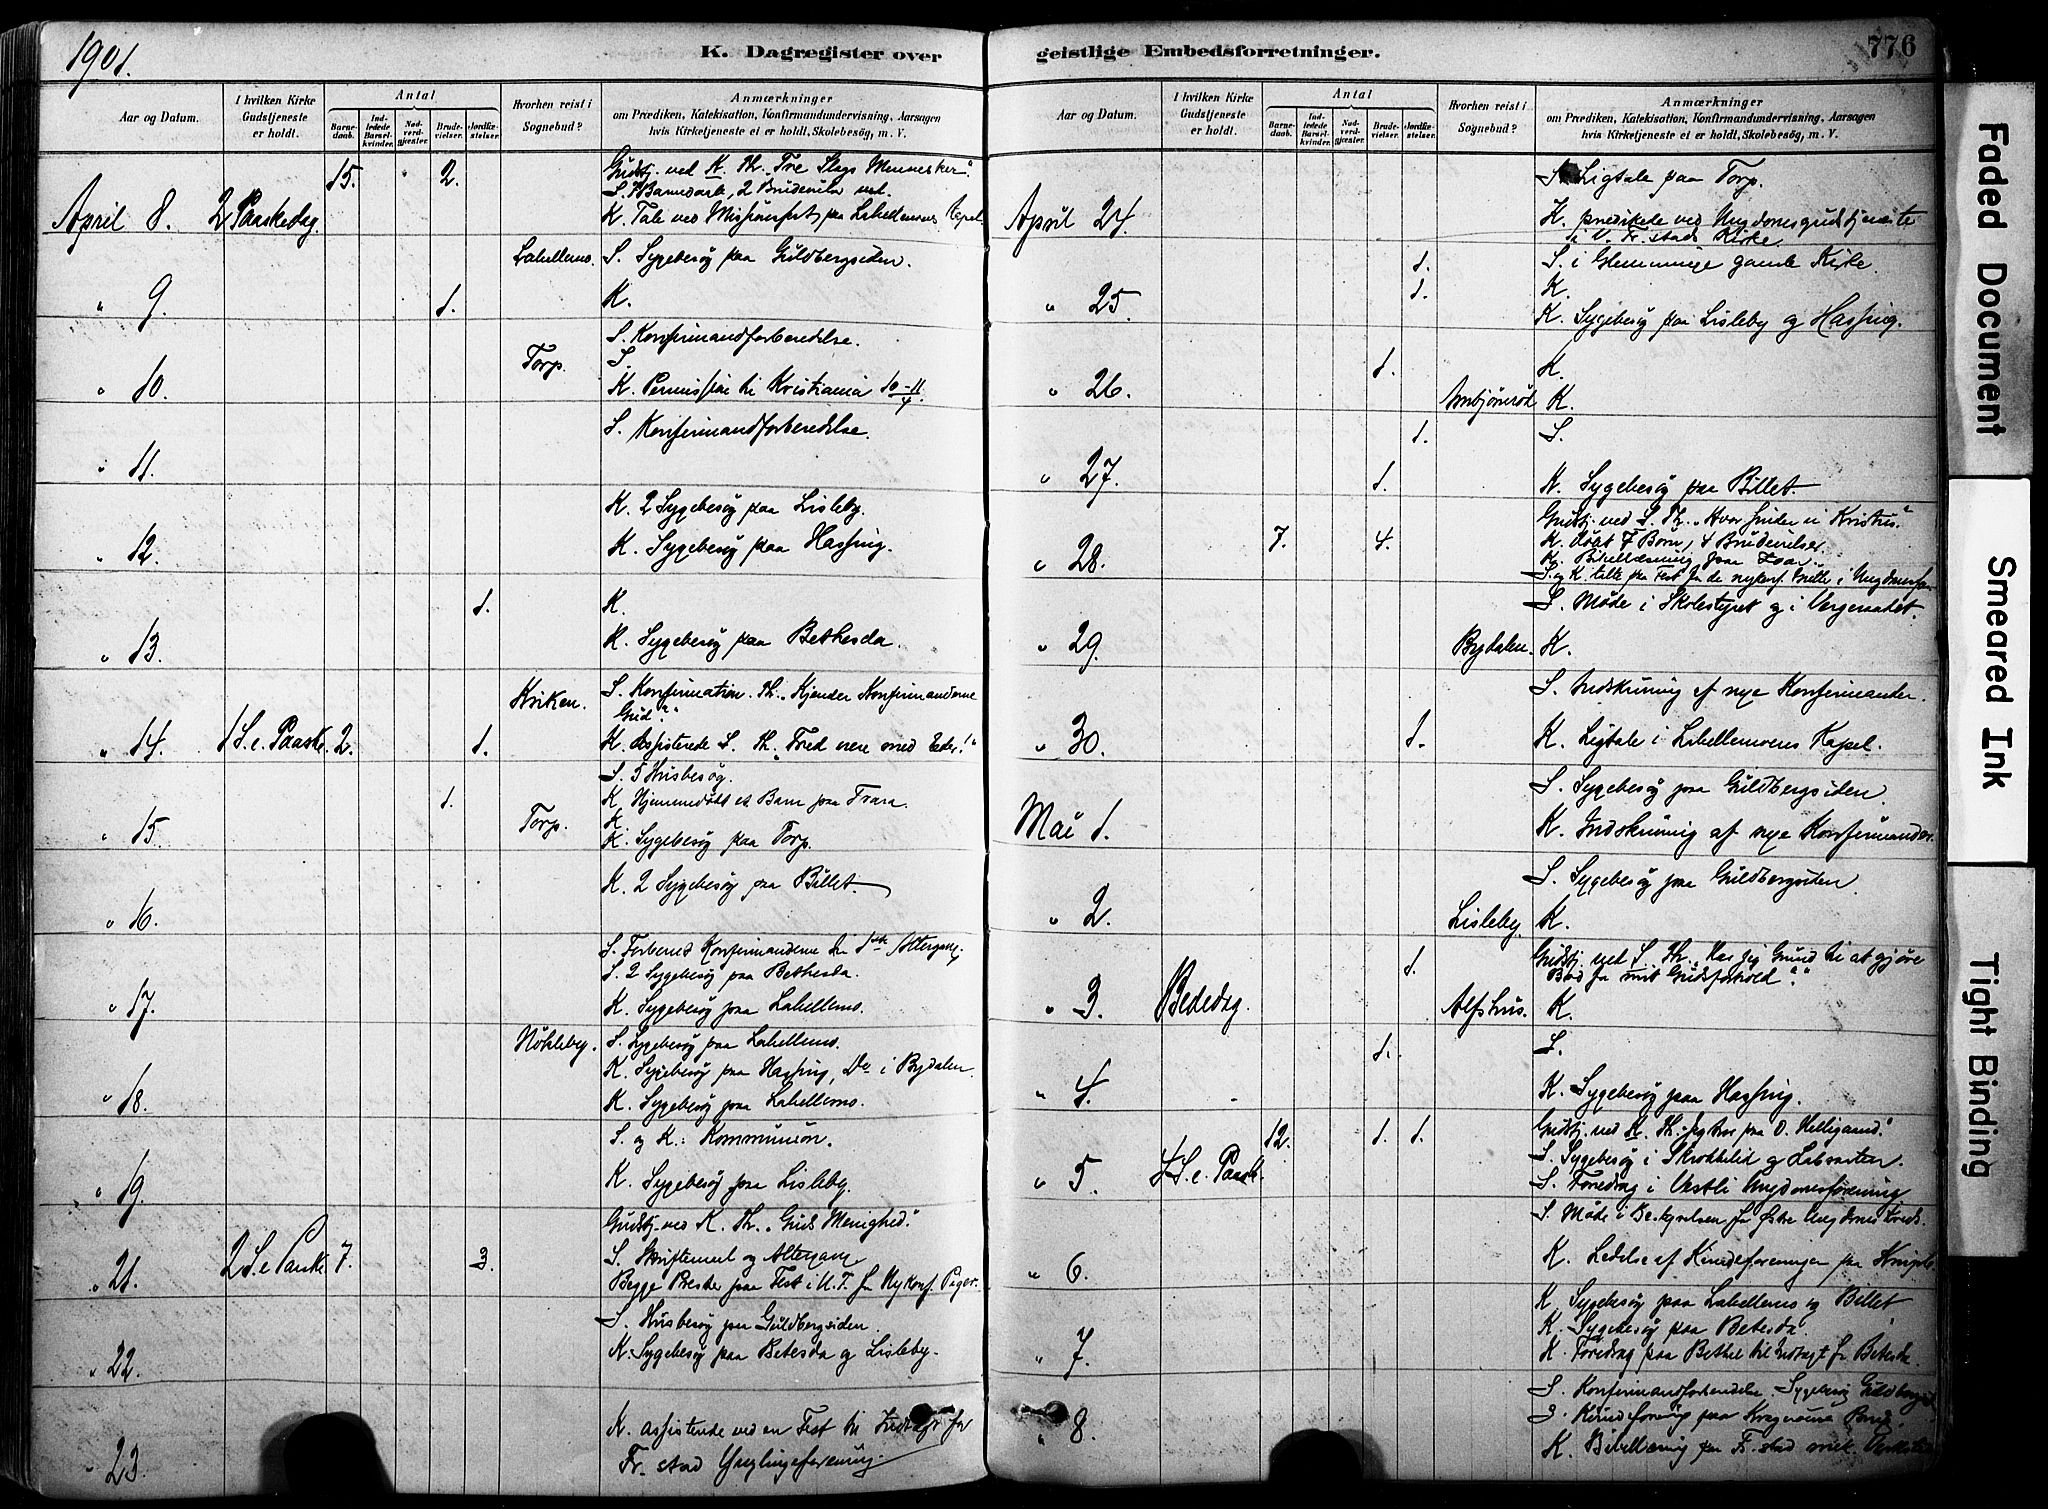 1901.
K. Dagregister over
Aar og Datum.
I hvilken Kirke
Gudstjeneste
er holdt.
Antal
Barne-
daab.
Ind-
ledede
Barsel-
kvinder.
Nad-
verd-
gjæster.
Brude-
vielser.
Jordfæ-
stelser.
Hvorhen reist i
Sognebud?
Anmærkninger
om Prædiken, Katekisation, Konfirmandundervisning, Aarsagen
hvis Kirketjeneste ei er holdt, Skolebesög, m. V.
April 8. 2 Paaskedag. 15. 2. Gudstj. ved K. Th. "Tre Slags Mennesker."
S. Barnedaab, 2 Brudevielser
K. Tale ved Missionsfest paa Lahellemoens Kapel
" 9. Lahellemo. 1. S. Sygebesög paa Guldbergsiden.
K.
" 10. Torp. S. Konfirmandforberedelse.
S.
K. Permission til Kristiania 10-11/4.
" 11. S. Konfirmandforberedelse.
" 12. K. 2 Sygebesög paa Lisleby.
K. Sygebesög paa Hassing.
" 13. 1. K.
K. Sygebesög paa Bethesda.
" 14. 1 S. e. Paaske 2. 1. Kriken. S. Konfirmation. Th. "Kjender Konfirmanderne
Gud?"
K. Assisterede S. Th. "Fred være med Eder!"
" 15. 1. Torp. S. 5 Husbesög.
K. Hjemmedöbt et Barn paa Trara.
K
K. Sygebesög paa Torp.
" 16. K. 2 Sygebesög paa Billet.
" 17. S. Forbered Konfirmanderne til 1ste Altergang.
S. 2 Sygebesög paa Bethesda.
K. Sygebesög paa Lahellemo.
" 18. Nökleby. S. Sygebesög paa Lahellemo.
K. Sygebesög paa Hassing, Do i Bydalen.
K. Sygebesög paa Lahellemo.
" 19. S. og K. Kommunion.
K. Sygebesög paa Lisleby.
" 21. 2 S. e. Paaske. 7. 3. Gudstj. ved K. Th. "Guds Menighed."
S. Skriftemaal og Altergang
Begge Prester paa Fest i U. F. for Nykonf. Piger.
" 22. S. Husbesög paa Guldbergsiden.
K. Sygebesög paa Betesda og Lisleby.
" 23. K. assisterede ved en Fest til Indtægt for
Fr.stad Ynglingeforening.
geistlige Embedsforretninger.
776
Aar og Datum.
I hvilken Kirke
Gudstjeneste
er holdt.
Antal
Barne-
daab.
Ind-
ledede
Barsel-
kvinder.
Nad-
verd-
gjæster.
Brude-
vielser.
Jordfæ-
stelser.
Hvorhen reist i
Sognebud?
Anmærkninger
om Prædiken, Katekisation, Konfirmandundervisning, Aarsagen
hvis Kirketjeneste ei er holdt, Skolebesög, m. V.
April 24. S. Ligtale paa Torp.
K. prædikede ved Ungdomsgudstjeneste
i V. Fr.stads Kirke
" 25. 1. S. i Glemminge gamle Kirke.
1. K.
K. Sygebesög paa Lisleby og Hassing.
" 26. 1. K.
Ambjörnröd K.
" 27. 1. S.
1. K. Sygebesög paa Billet.
" 28. 7. 4. Gudstj. ved S. Th. "Hvor finder vi Kristus."
K. döbt 7 Börn, 4 Brudevielser.
K. Bibellæsning paa Zoar.
S. og K. talte paa Fest for de nykonf. i Ungdomsfor.
" 29. S. Möde i Skolestyret og i Vergeraadet.
Bydalen. K.
" 30. S. Indskrivning af nye Konfirmander.
1. K. Ligtale i Lahellemoens Kapel.
Mai 1. S. Sygebesög paa Guldbergsiden.
K. Indskrivning af nye Konfirmander.
" 2. S. Sygebesög paa Guldbergsiden.
Lisleby. K.
" 3. Bededag. 1. Gudstj. ved S. Th. "Har jeg Grund til at gjöre
Bod for mit Gudsforhold?"
Alfshus. K.
" 4. 1. S.
K. Sygebesög paa Hassing.
" 5. 4 S. e. Paask. 12. 1. 1. Gudstj. ved K. Th. "Jeg tror paa d. Helligaand."
S. Sygebesög i og Labraaten.
S. Foredrag i Vestli Ungdomsforening
" 6. S. Möde i Bestyrelsen for Östre Ungdoms Kreds.
K. Ledelse af Kvindeforeningen paa
" 7. K. Sygebesög paa Lahellemo og Billet
K. Sygebesög paa Betesda.
K. Foredrag paa Bethel til Indtægt for Betesda.
" 8. S. Konfirmandforberedelse. Sygebesög Guldbergsd.
S. Kvindeforening paa
K. Bibellæsning paa Fr.stad mek. Verksted
Faded Document
Smeared Ink
Tight Binding